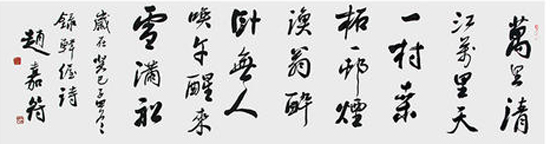 萬里清
江萬里天
一村桑
柘一邨煙
漁翁醉
卧無人
喚午醒來
雪滿船
歲在癸巳
錄韓偓诗
趙嘉符